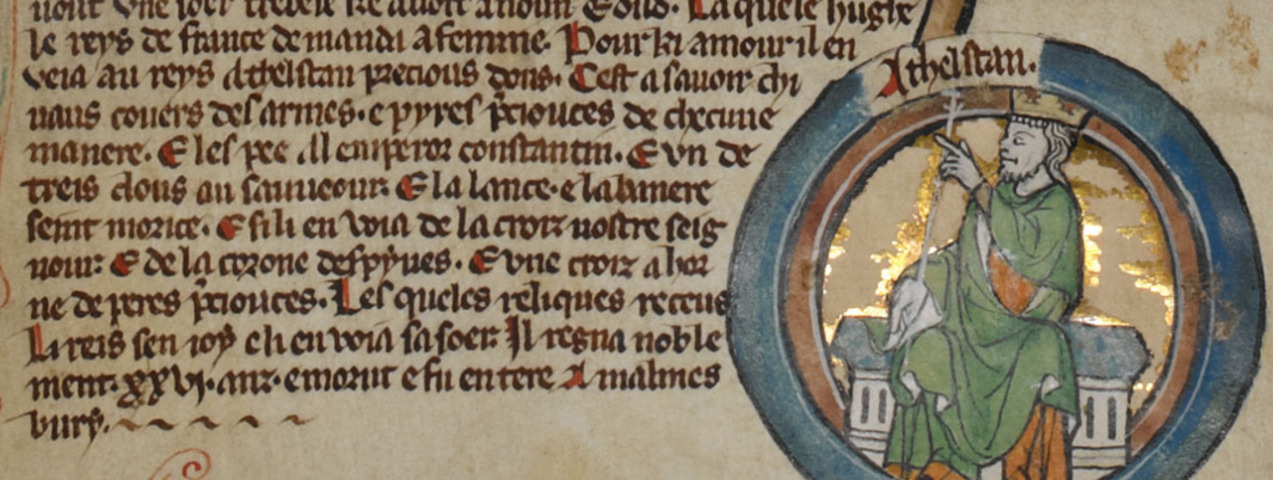 uoit vne soer trebele ke auoit anoun Eoild. La quele hugh
le reys de france demanda a femme. Pour ki amour il en
veia au reys Athelstan precious dons. Cest a sauoir chi
uaus couers des armes. e pyres p̃ciouces de checune
manere. E les pee Al emperor constantin. E vn de
treis clous au sauueour. E la lance. e la banere
seint morice. E si li en voia de la croiz nostre seig
nour. E de la corone despynes. E vne croiz a hor
ne de peres p̃ciouces. Les queles reliques receus
Li reis sen ioy e li en voia sa soer. Il regna noble
ment. xxvi. anz. e morut e fu en tere A malmes
bury.
Athelstan.